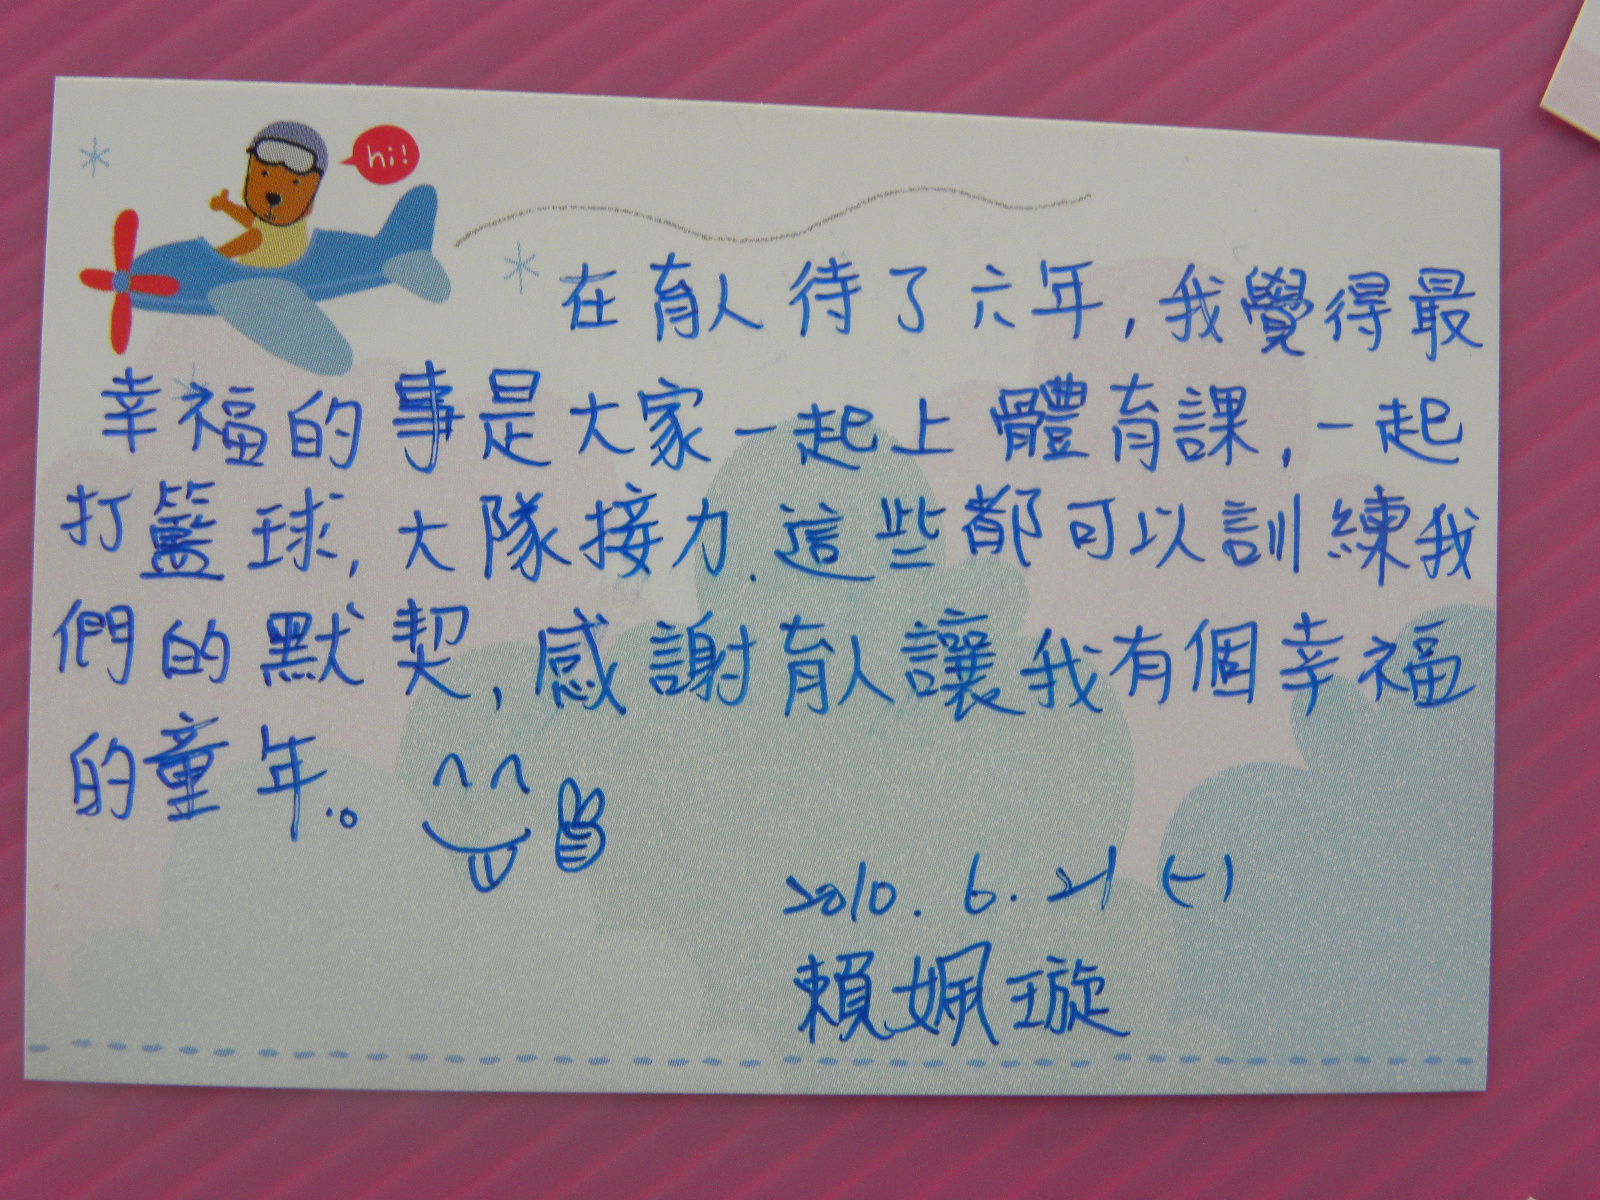 hi!
在育人待了六年,我覺得最
幸福的事是大家一起上體育課,一起
打籃球,大隊接力.這些都可以訓練我
們的默契,感謝育人讓我有個幸福
的童年。
2010.6.21(一)
賴姵璇